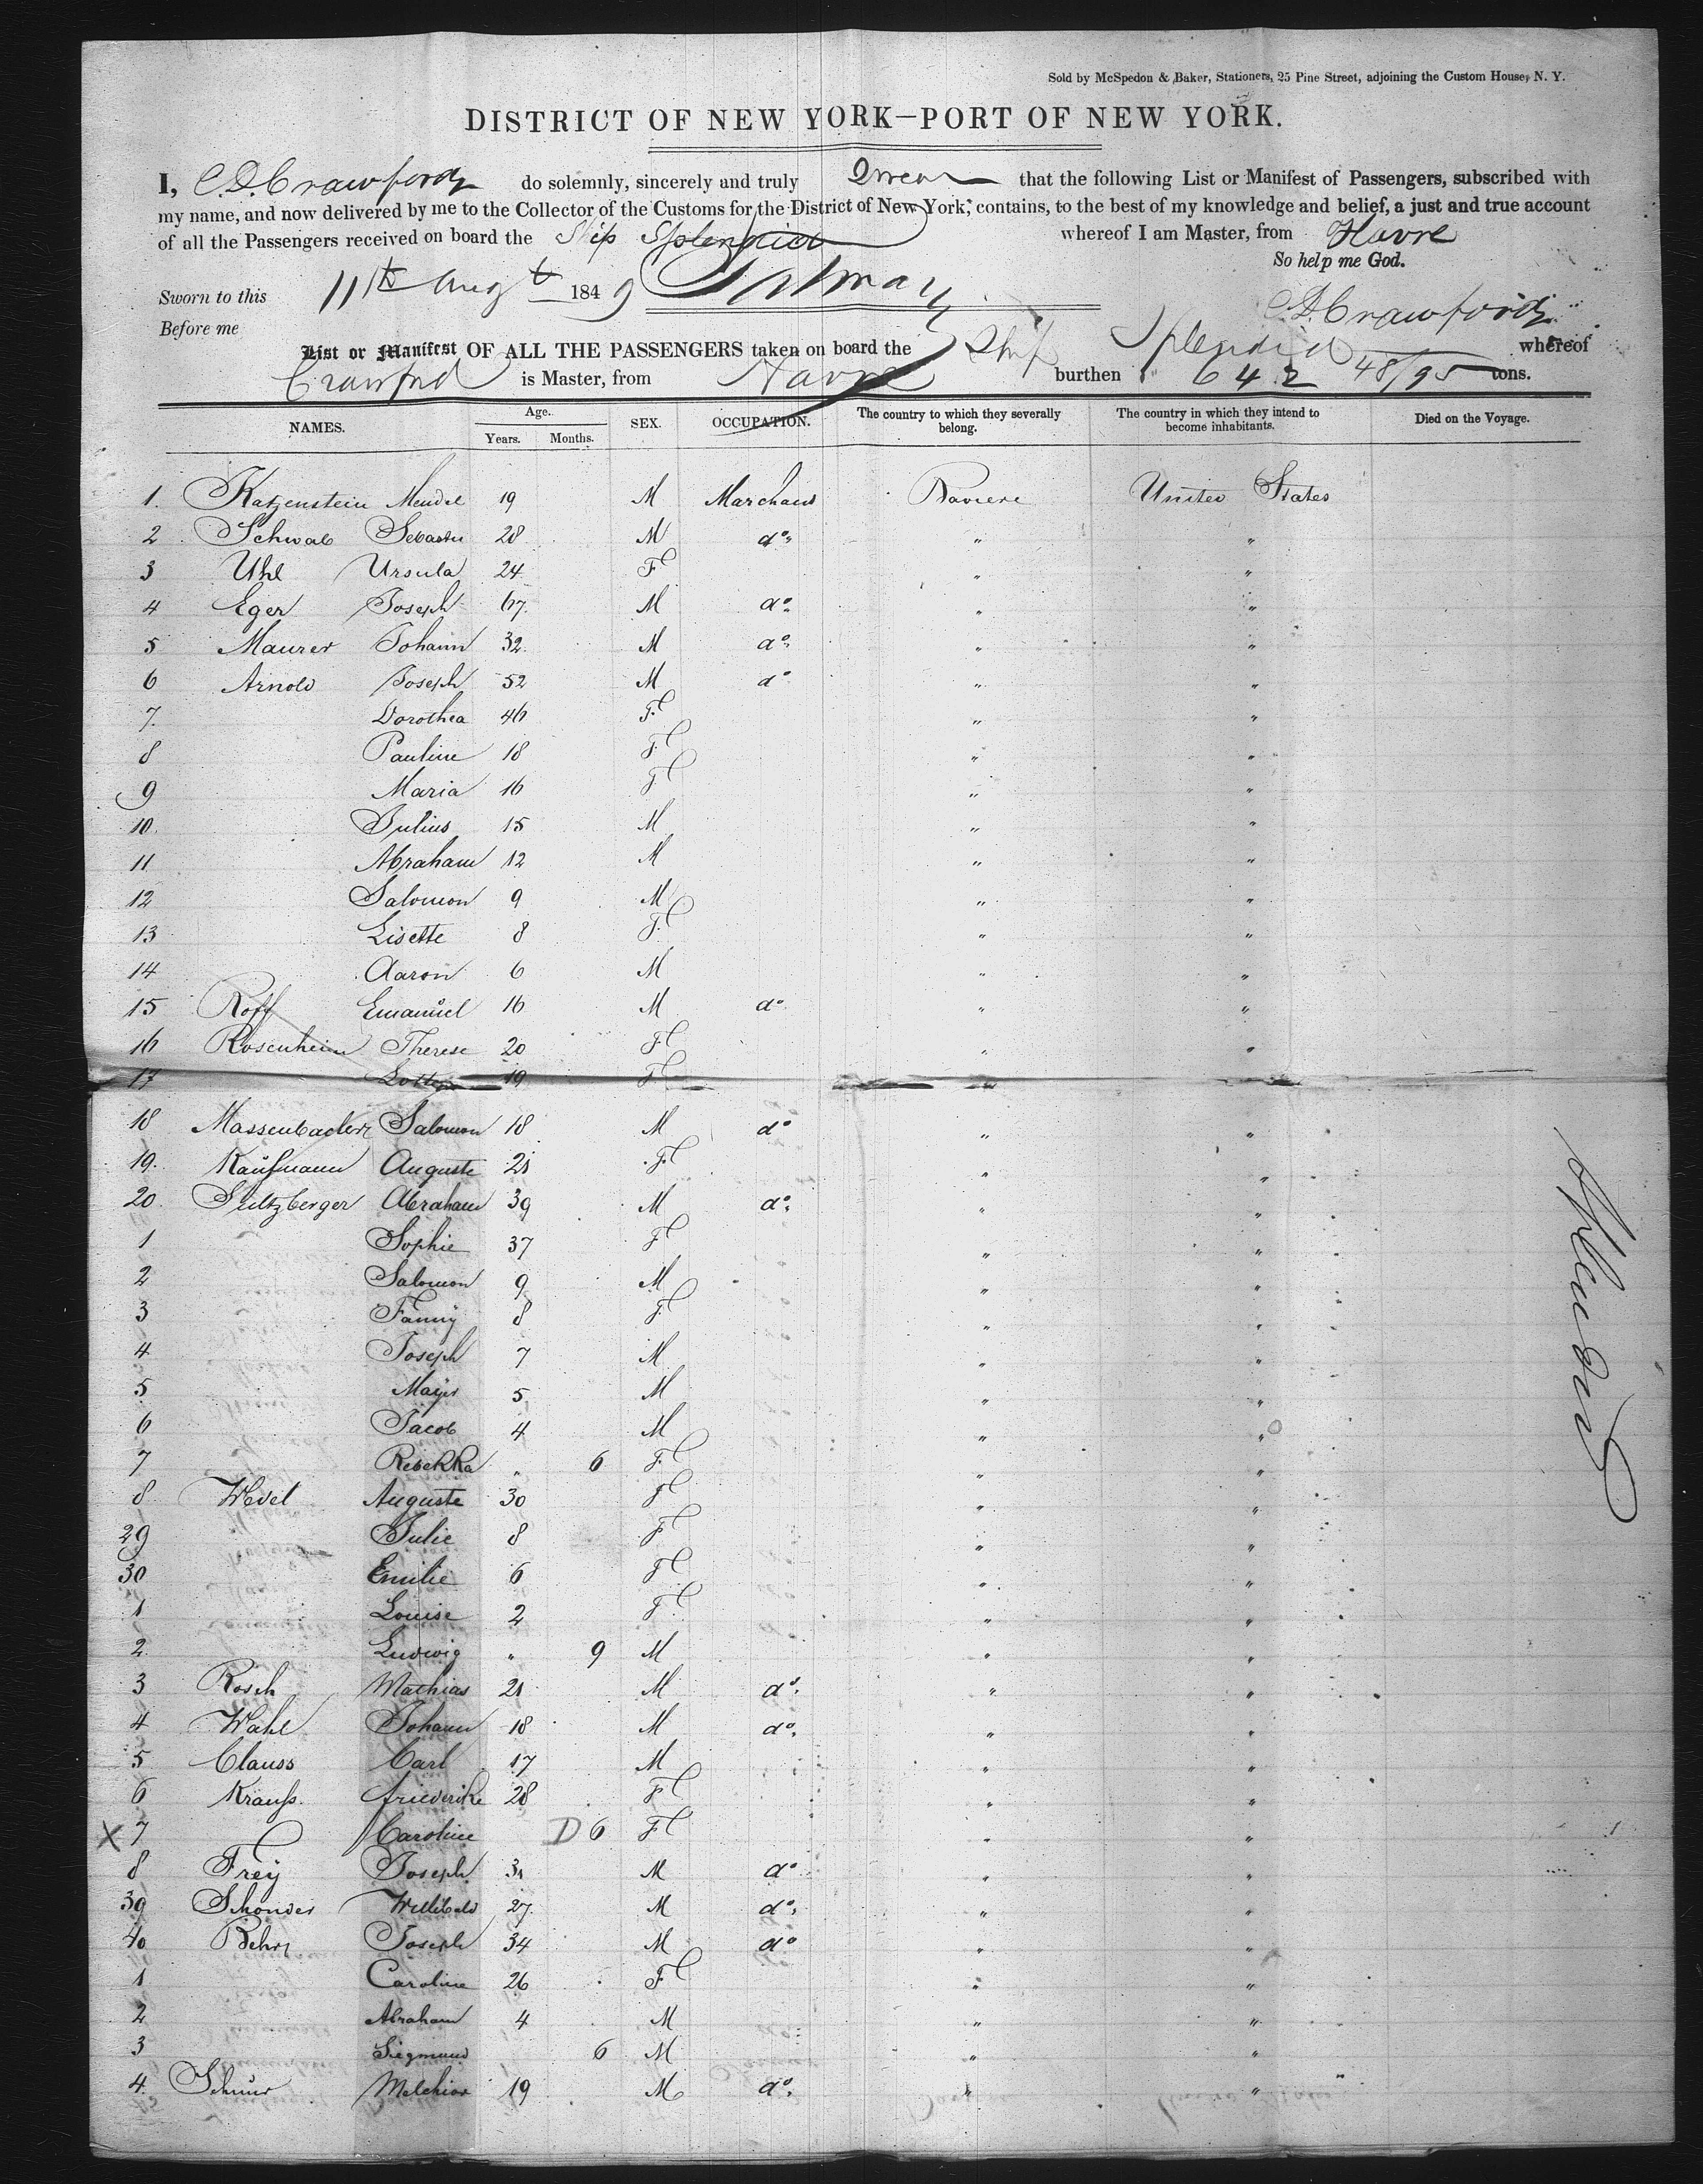 Sold by McSpedon & Baker, Stationers, 25 Pine Street, adjoining the Custom House, N. Y.
DISTRICT OF NEW YORK—PORT OF NEW YORK.
I, C.D. Crawford do solemnly, sincerely and truly Swear that the following List or Manifest of Passengers, subscribed with
my name, and now delivered by me to the Collector of the Customs for the District of New York, contains, to the best of my knowledge and belief, a just and true account
of all the Passengers received on board the Ship Splendid whereof I am Master, from Havre
So help me God.
Sworn to this 11th Augt 1849
Before me C.D. Crawford
List or Manifest OF ALL THE PASSENGERS taken on board the Ship Splendid whereof
Crawford is Master, from Havre burthen 642 48/95 tons.
NAMES. Age. Years. Months. SEX. OCCUPATION. The country to which they severally belong. The country in which they intend to become inhabitants. Died on the Voyage.
1. Katzenstein Mendel 19 M Marchand Baviere United States
2 Schwab Sebastn 28 M do " "
3 Uhl Ursula 24 F " "
4 Eger Joseph 67 M do " "
5 Maurer Johann 32 M do " "
6 Arnold Joseph 52 M do " "
7. Dorothea 46 F " "
8 Pauline 18 F " "
9 Maria 16 F " "
10. Julius 15 M " "
11 Abraham 12 M " "
12 Salomon 9 M " "
13 Lisette 8 F " "
14 Aaron 6 M " "
15 Roff Emanuel 16 M do " "
16 Rosenheim Therese 20 F " "
17 19 F " "
18 Massenbacher Salomon 18 M do " "
19. Kaufmann Auguste 21 F " "
20. Sultzberger Abraham 39 M do " "
1 Sophie 37 F " "
2 Salomon 9 M " "
3 Fanny 8 F " "
4 Joseph 7 M " "
5 Mayer 5 M " "
6 Jacob 4 M " "
7 Rebekka " 6 F " "
8 Wedel Auguste 30 F " "
29 Julie 8 F " "
30 Emilie 6 F " "
1 Louise 2 F " "
2 Ludwig " 9 M " "
3 Rosch Mathias 21 M do " "
4 Wahl Johann 18 M do " "
5 Clauss Carl 17 M " "
6 Krauss Friederike 28 F " "
X 7 Caroline D 6 F " "
8 Frey Joseph 31 M do " "
39 Schonder Willibald 27 M do " "
40 Behr Joseph 34 M do " "
1 Caroline 26 F " "
2 Abraham 4 M " "
3 Siegmund 6 M " "
4. Schnur Melchior 19 M do " "
Splendid